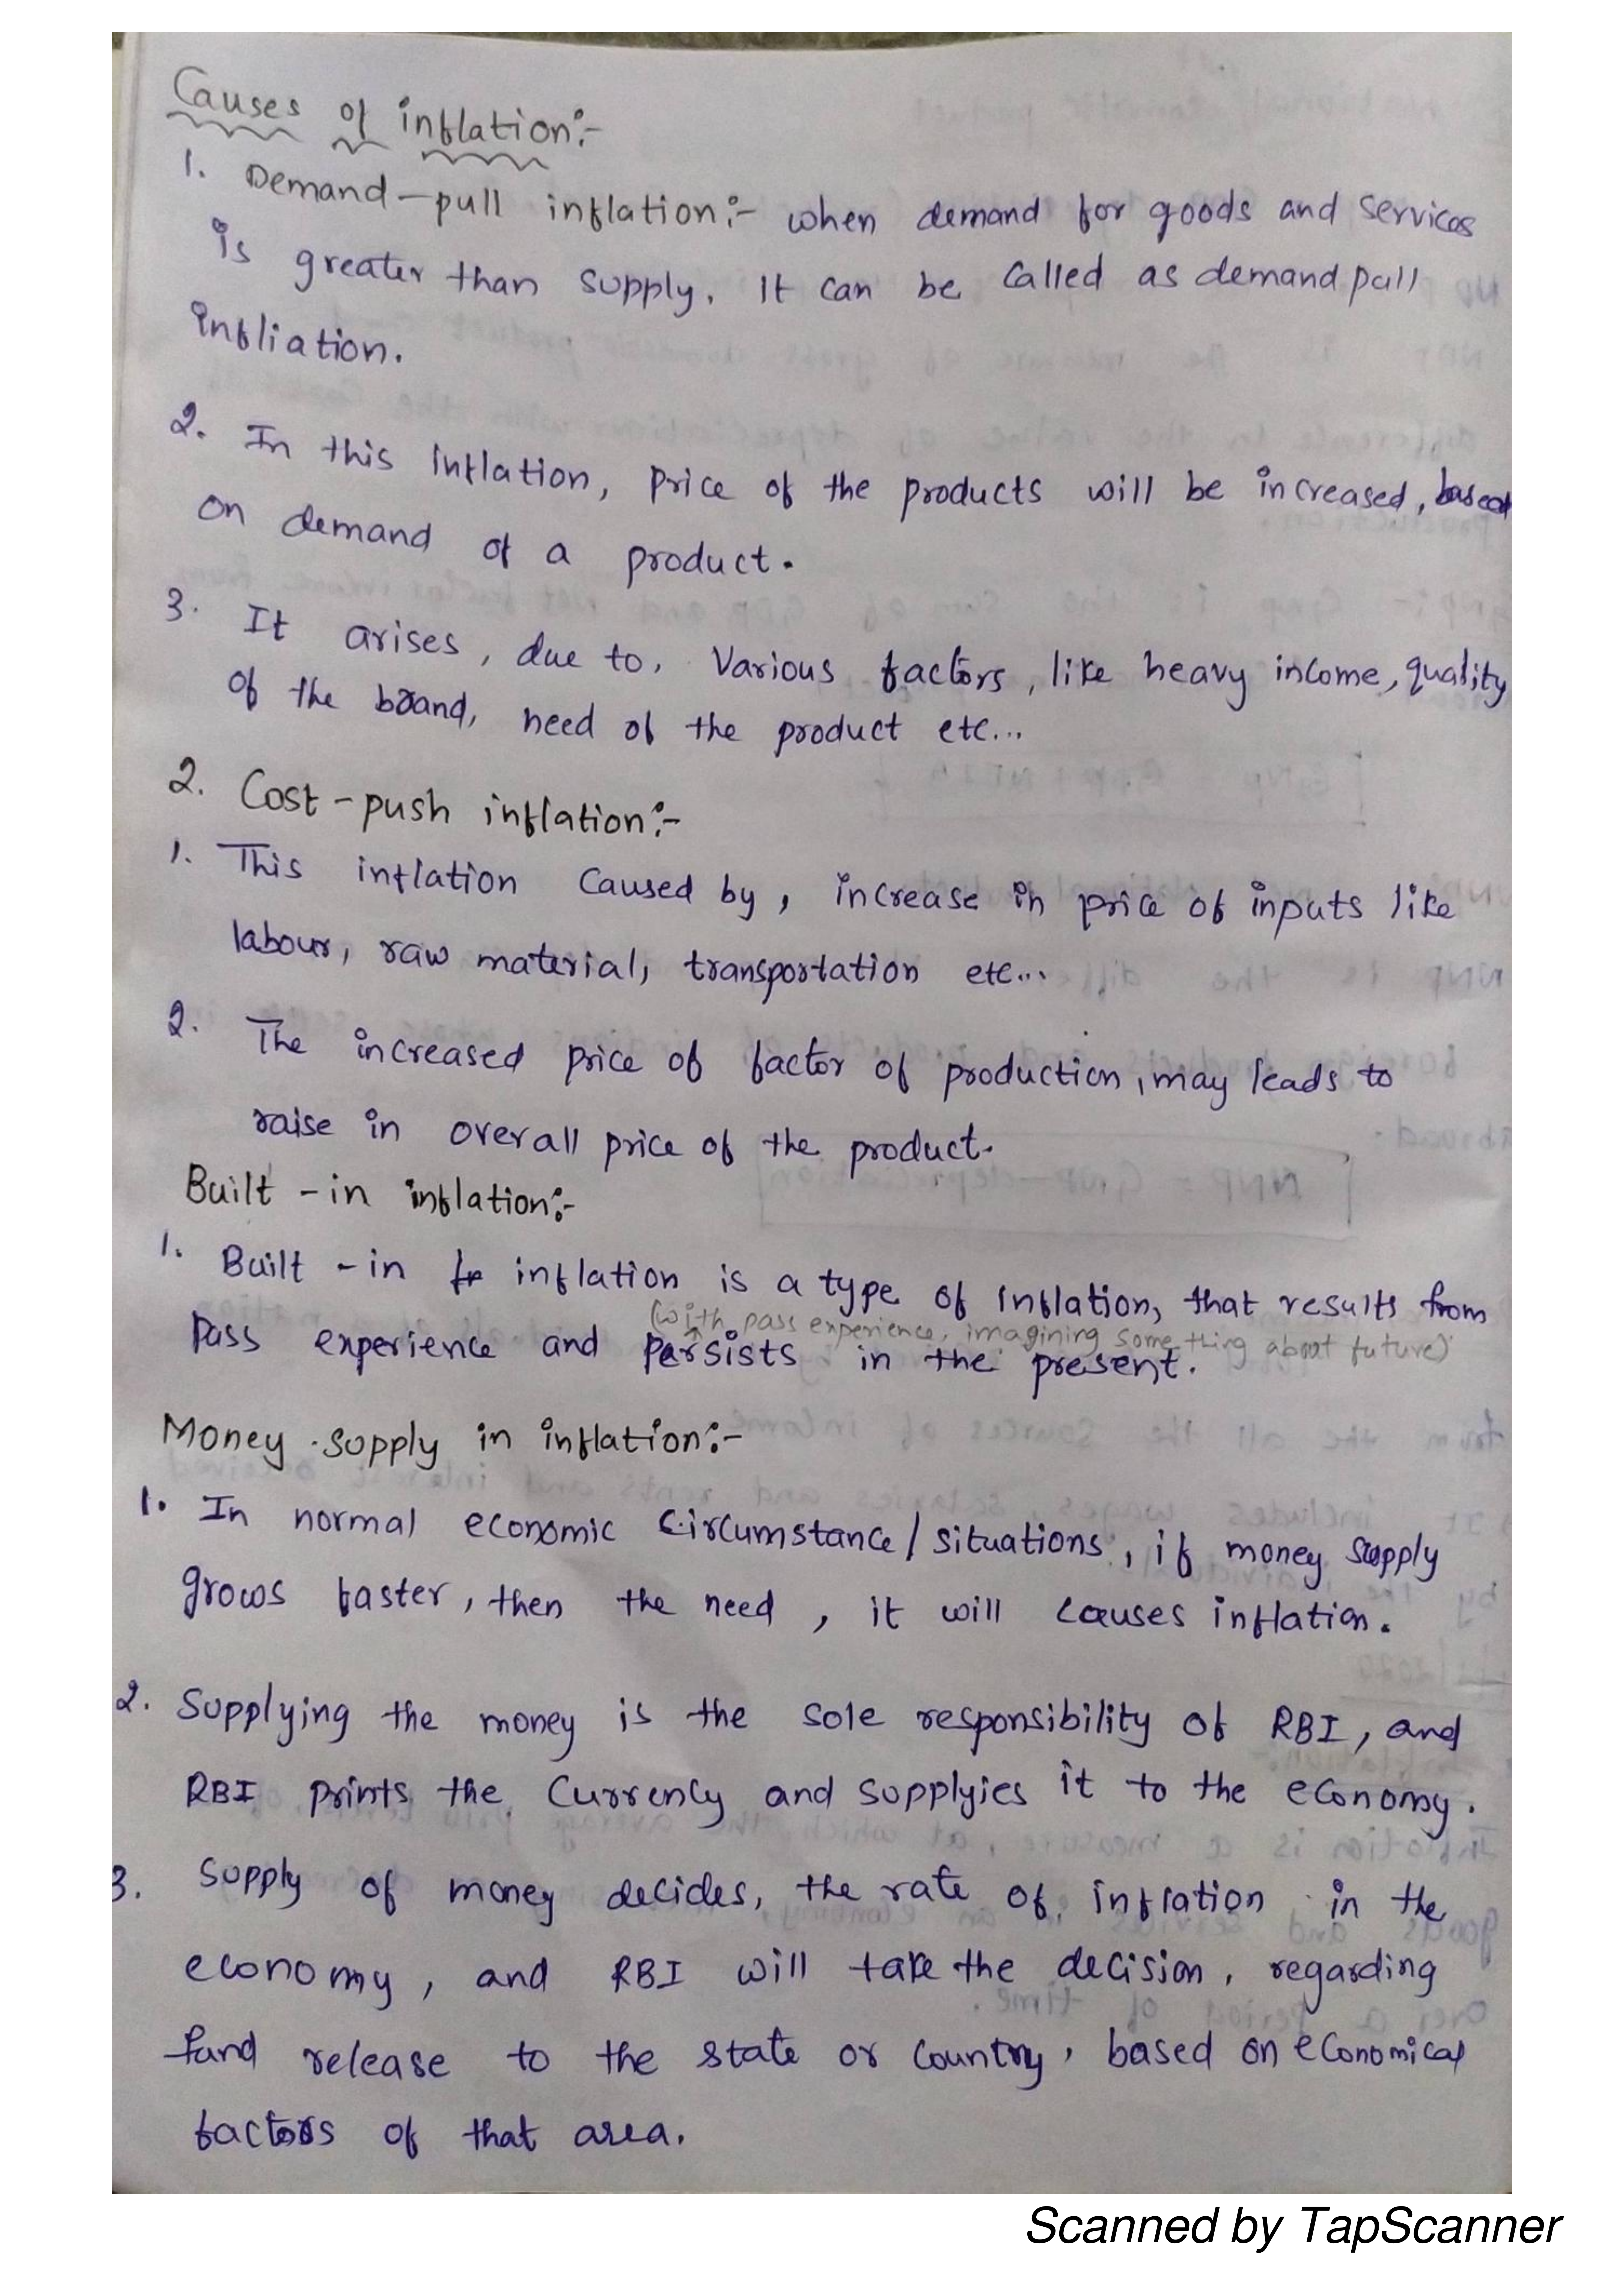 Causes of inflation:-
1. Demand-pull inflation:- when demand for goods and services
is greater than supply. It can be called as demand pull
infliation.
2. In this inflation, price of the products will be increased, based
on demand of a product.
3. It arises, due to, various factors, like heavy income, quality
of the brand, need of the product etc...
2. Cost-push inflation:-
1. This inflation caused by, increase in price of inputs like
labour, raw material, transportation etc...
2. The increased price of factor of production, may leads to
raise in overall price of the product.
Built-in inflation:-
1. Built-in inflation is a type of inflation, that results from
(with pass experience, imagining some thing about future)
Pass experience and persists in the present.
Money supply in inflation:-
1. In normal economic circumstance/situations, if money supply
grows faster, then the need, it will causes inflation.
2. Supplying the money is the sole responsibility of RBI, and
RBI prints the currency and supplyies it to the economy.
3. Supply of money decides, the rate of inflation in the
economy, and RBI will take the decision, regarding
fund release to the state or country, based on economical
factors of that area.
Scanned by TapScanner